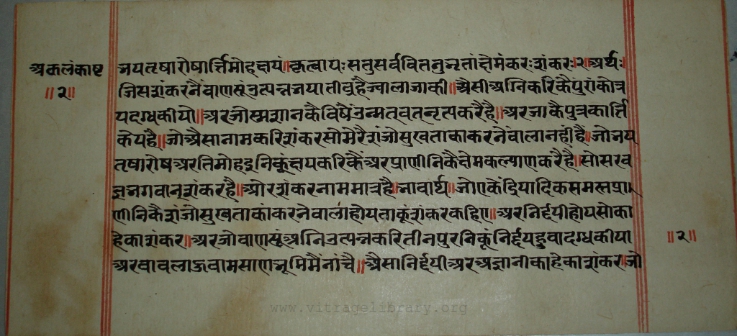 अकलंकाष्ट
॥२॥
भयतृषारोषार्त्तिमोहक्षयं॥कृत्वायःसतुसर्ववितनुभृतांक्षेमंकरःशंकरः॥२॥अर्थः
जिसशंकरनैंवाणसूंउत्पन्नभयातीवुहैज्वालाजाकी॥ऐसीअग्निकरिकैपुरांकोत्र
यदग्धकीयो॥अरजोस्मशानकैविषैंउन्मतवतनृत्यकरैहै॥अरजाकैपुत्रकार्त्ति
केयहै॥जोऐसानामकरिशंकरसोमेरैशंजोसुखताकाकरनेंवालानहीहैं॥जोभय
तृषारोषअरतिमोहइनिकूंक्षयकरिकैंअरप्राणीनिकैक्षेमकल्याणकरैहै॥सोसरव
ज्ञभगवानशंकरहै॥ओरशंकरनाममात्रहै॥भावार्थ॥जोएकेंद्रियादिकसमस्तप्रा
णीनिकैशंजोसुखताकांकरनेवालाहोयताकूंशंकरकहिए॥अरनिर्द्दयीहोयसोका
हेकाशंकर॥अरजोवाणसूंअग्निउत्पन्नकरितीनपुरनिकूंनिर्द्दयहुवादग्धकीया
अरबावलाऊवामसाणभूमिमैंनांचै॥ऐसानिर्द्दयीअरअज्ञानीकाहेकाशंकर॥जो
॥२॥
www.vitragelibrary.org